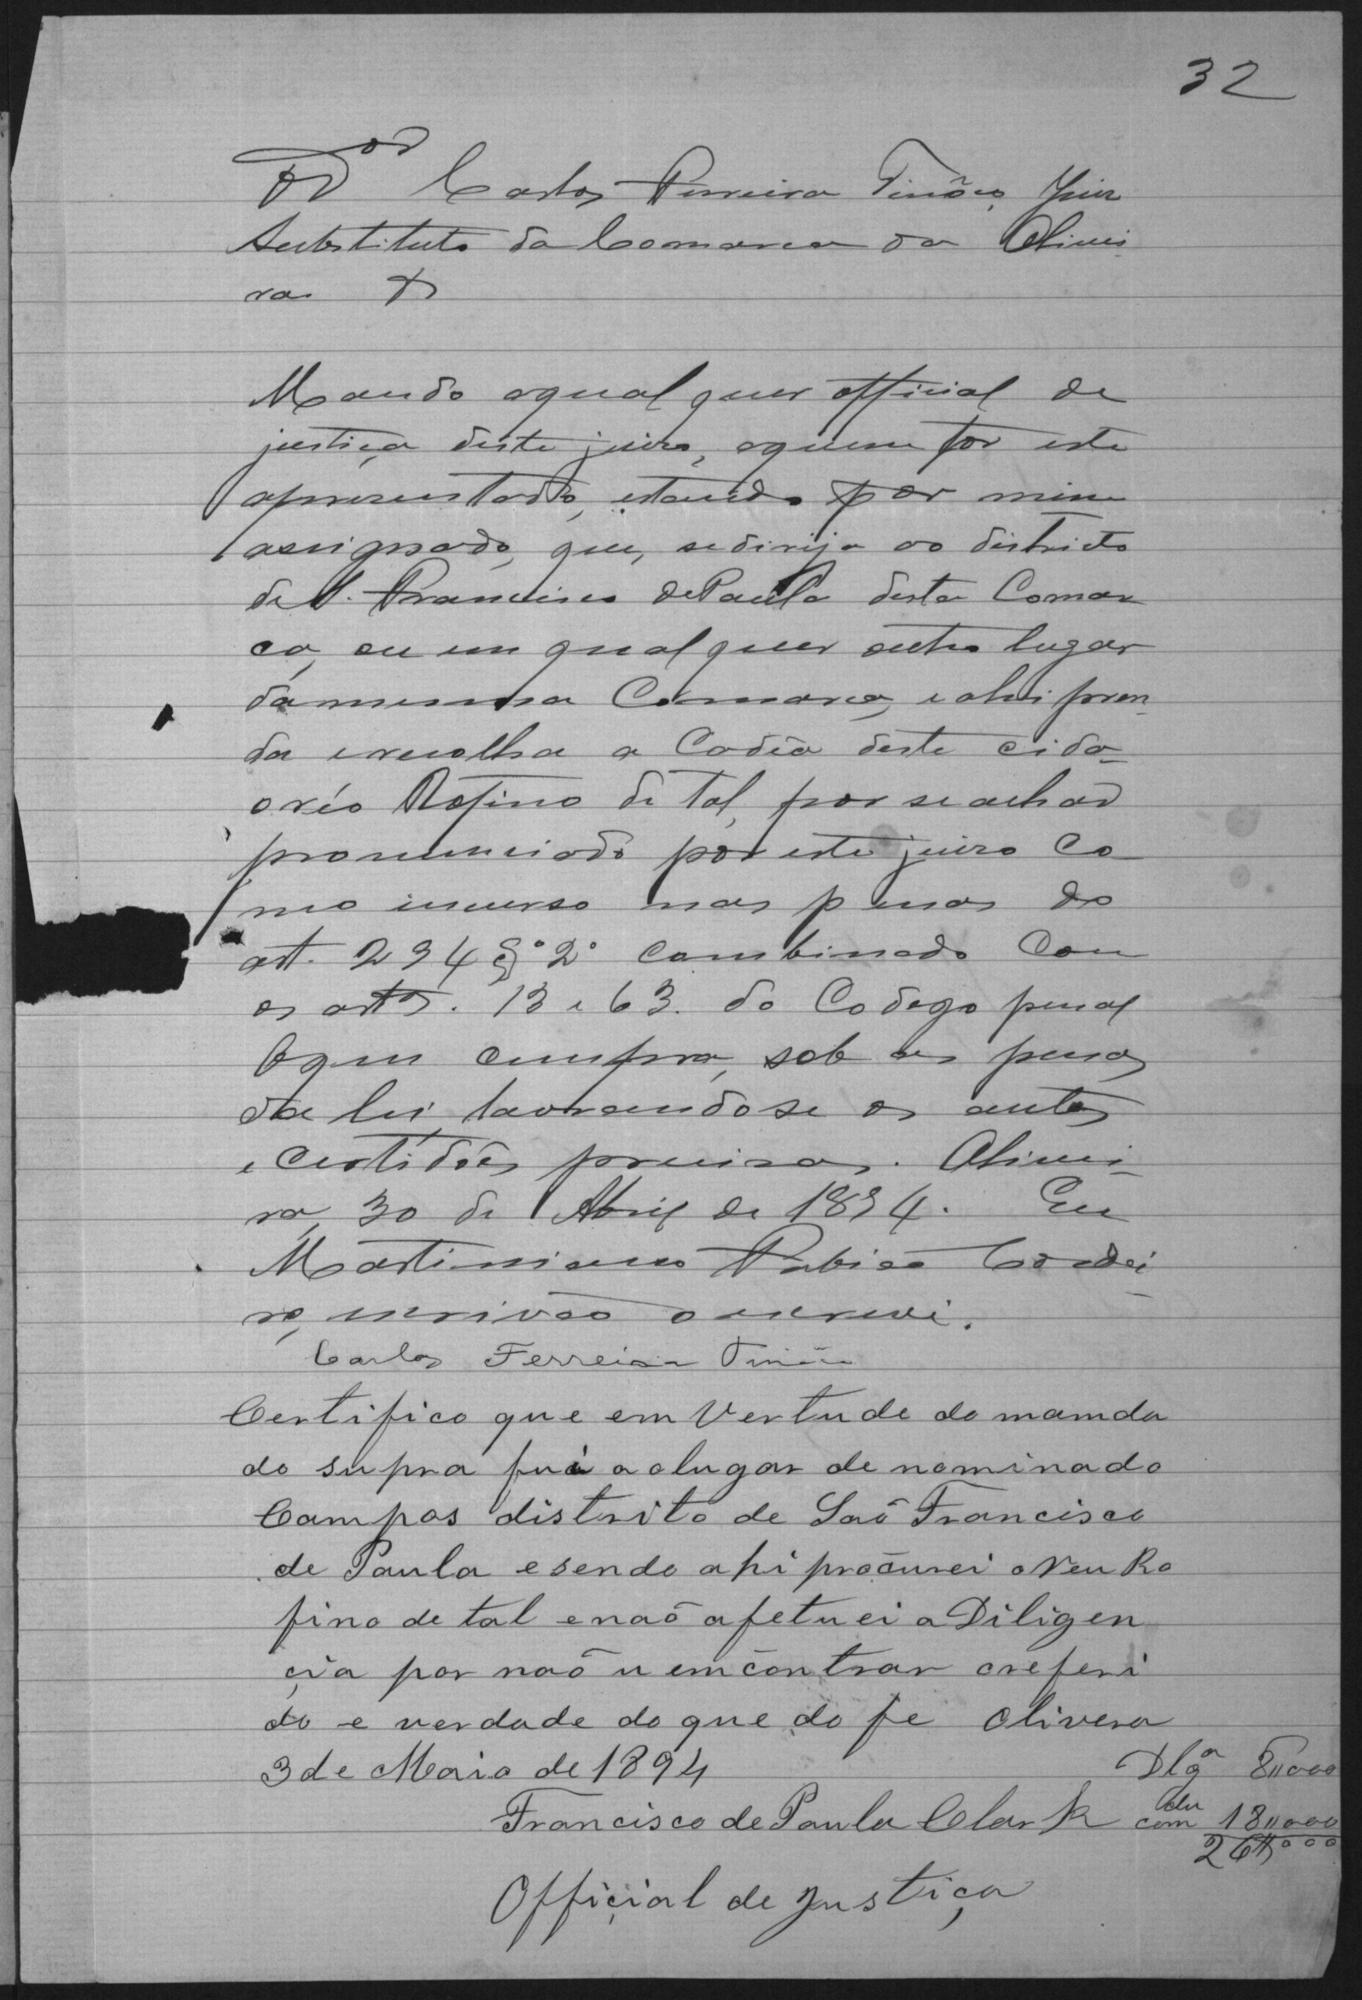 32
O Dor Carlos Ferreira Tinôco, Juiz
Substituto da Comarca da Olivei
ra &
Mando aqualquer official de
justiça deste juizo, aquem for este
apresentado, estando por mim
assignado, que, sedirija ao districto
de S. Francisco de Paula desta Comar
ca, ou em qualquer outro lugar
damesma Comarca, e ahi pren-
da erecolha a Cadêa deste cida-
o réo Rofino de tal, por se achar
pronunciado por este juizo co
mo incurso nas penas do
art. 294 § 2º combinado com
os artos. 13 e 63. do Codego penal
Oque cumpra, sob as penas
da lei, lavrando se os autos
e certidões precisas. Olivei-
ra, 30 de Abril de 1894. Eu
Martiniano Rabiao Cordei
ro, escrivão o escrevi.
Carlos Ferreira Tinôco
Certifico que em Vertude do mamda
do supra fui a olugar de nominado
Campos distrito de Saõ Francisco
de Paula e sendo ahi procurei o Reu Ro
fino de tal e naõ afetuei a Diligen
çia por naõ u emcontrar oreferi
do e verdade do que do fe Olivera
3 de Maio de 1894
Dlga 8,,000
Francisco de Paula Clark
com 18,,000
26$000
Offiçial de Justiça